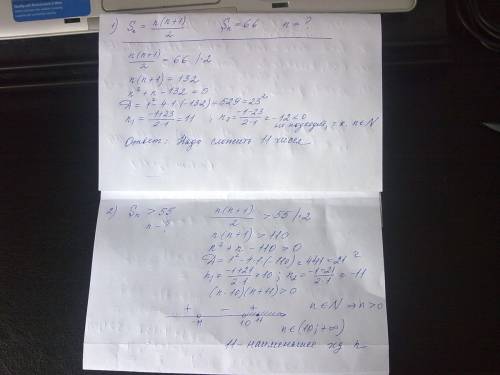 1) Sₙ = n(n+1)/2   Sₙ = 66   n = ?
n(n+1)/2 = 66 |·2
n(n+1) = 132
n² + n - 132 = 0
D = 1² - 4·1·(-132) = 529 = 23²
n₁ = (-1+23)/(2·1) = 11 ; n₂ = (-1-23)/(2·1) = -12 < 0
не подходит, т.к. n∈N
Ответ: Надо сложить 11 чисел
2) Sₙ > 55   n(n+1)/2 > 55 |·2
n - ?
n(n+1) > 110
n² + n - 110 > 0
D = 1² - 4·1·(-110) = 441 = 21²
n₁ = (-1+21)/(2·1) = 10 ; n₂ = (-1-21)/(2·1) = -11
(n-10)(n+11) > 0
+ - +
n∈N ⇒ n>0
-11 10 11
n∈(10; +∞)
11 - наименьшее n